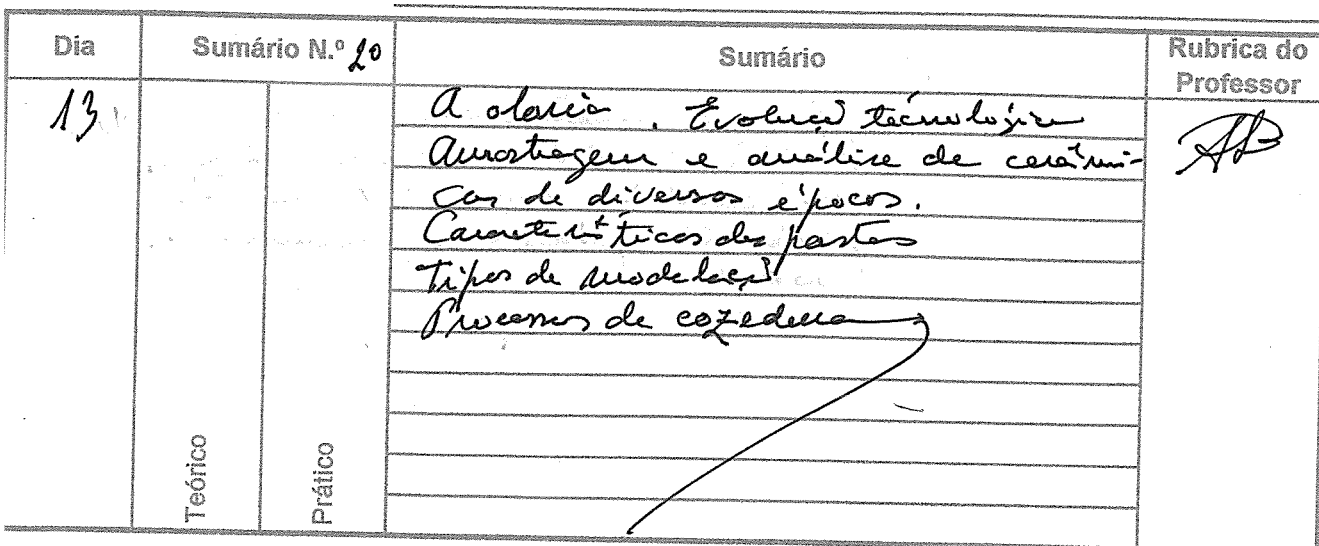 Dia
Sumário N.º 20
Sumário
Rubrica do
Professor
13
A olaria. Evolução tecnológica
Amostragem e análise de cerâmi-
cas de diversas épocas.
Características das pastas
Tipos de modelação
Processos de cozedura
Teórico
Prático